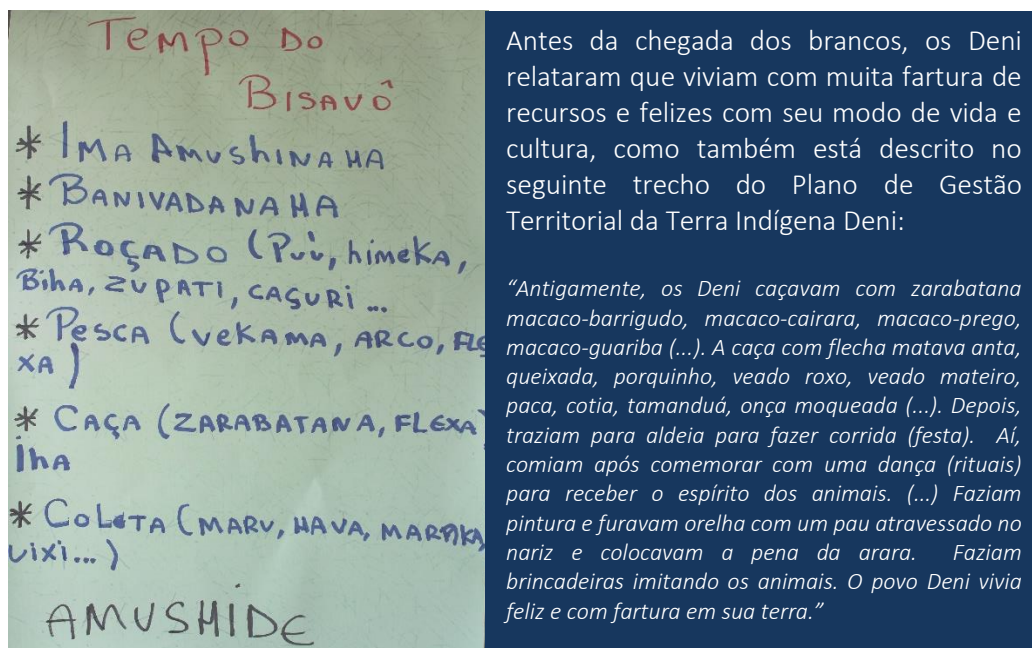 TEMPO DO
BISAVÔ
* IMA AMUSHINAHA
* BANIVADANAHA
* ROÇADO (Puú, himeKA,
Biha, ZUPATI, CAÇURI ...
* PESCA (VEKAMA, ARCO, FLE
XA)
* CAÇA (ZARABATANA, FLEXA)
ihA
* COLETA (MARU, HAVA,
UIXI... )
AMUSHIDE
Antes da chegada dos brancos, os Deni
relataram que viviam com muita fartura de
recursos e felizes com seu modo de vida e
cultura, como também está descrito no
seguinte trecho do Plano de Gestão
Territorial da Terra Indígena Deni:
“Antigamente, os Deni caçavam com zarabatana
macaco-barrigudo, macaco-cairara, macaco-prego,
macaco-guariba (...). A caça com flecha matava anta,
queixada, porquinho, veado roxo, veado mateiro,
paca, cotia, tamanduá, onça moqueada (...). Depois,
traziam para aldeia para fazer corrida (festa). Aí,
comiam após comemorar com uma dança (rituais)
para receber o espírito dos animais. (...) Faziam
pintura e furavam orelha com um pau atravessado no
nariz e colocavam a pena da arara. Faziam
brincadeiras imitando os animais. O povo Deni vivia
feliz e com fartura em sua terra.”